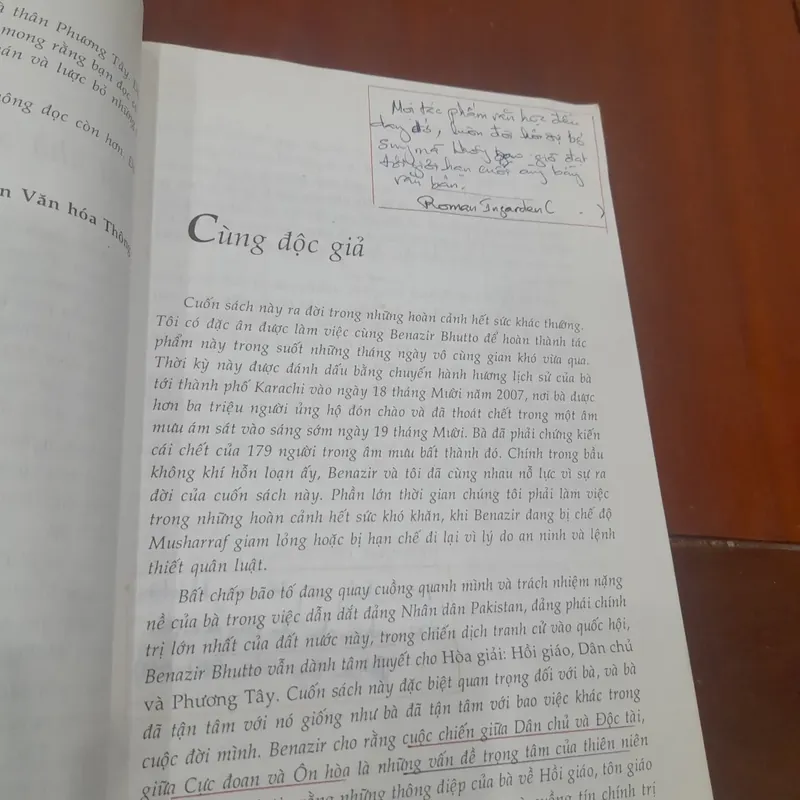 à thân Phương Tây.
mong rằng bạn đọc
án và lược bỏ những
ông đọc còn hơn.
n Văn hóa Thông
Mỗi tác phẩm văn học đều
dang dở, luôn đòi hỏi sự bổ
sung mà không bao giờ đạt
tới giới hạn cuối cùng bằng
văn bản.
Roman Ingarden (
Cùng độc giả
Cuốn sách này ra đời trong những hoàn cảnh hết sức khác thường.
Tôi có đặc ân được làm việc cùng Benazir Bhutto để hoàn thành tác
phẩm này trong suốt những tháng ngày vô cùng gian khó vừa qua.
Thời kỳ này được đánh dấu bằng chuyến hành hương lịch sử của bà
tới thành phố Karachi vào ngày 18 tháng Mười năm 2007, nơi bà được
hơn ba triệu người ủng hộ đón chào và đã thoát chết trong một âm
mưu ám sát vào sáng sớm ngày 19 tháng Mười. Bà đã phải chứng kiến
cái chết của 179 người trong âm mưu bất thành đó. Chính trong bầu
không khí hỗn loạn ấy, Benazir và tôi đã cùng nhau nỗ lực vì sự ra
đời của cuốn sách này. Phần lớn thời gian chúng tôi phải làm việc
trong những hoàn cảnh hết sức khó khăn, khi Benazir đang bị chế độ
Musharraf giam lỏng hoặc bị hạn chế đi lại vì lý do an ninh và lệnh
thiết quân luật.
Bất chấp bão tố đang quay cuồng quanh mình và trách nhiệm nặng
nề của bà trong việc dẫn dắt đảng Nhân dân Pakistan, đảng phái chính
trị lớn nhất của đất nước này, trong chiến dịch tranh cử vào quốc hội,
Benazir Bhutto vẫn dành tâm huyết cho Hòa giải: Hồi giáo, Dân chủ
và Phương Tây. Cuốn sách này đặc biệt quan trọng đối với bà, và bà
đã tận tâm với nó giống như bà đã tận tâm với bao việc khác trong
cuộc đời mình. Benazir cho rằng cuộc chiến giữa Dân chủ và Độc tài,
giữa Cực đoan và Ôn hòa là những vấn đề trọng tâm của thiên niên
rằng những thông điệp của bà về Hồi giáo, tôn giáo
tín chính trị